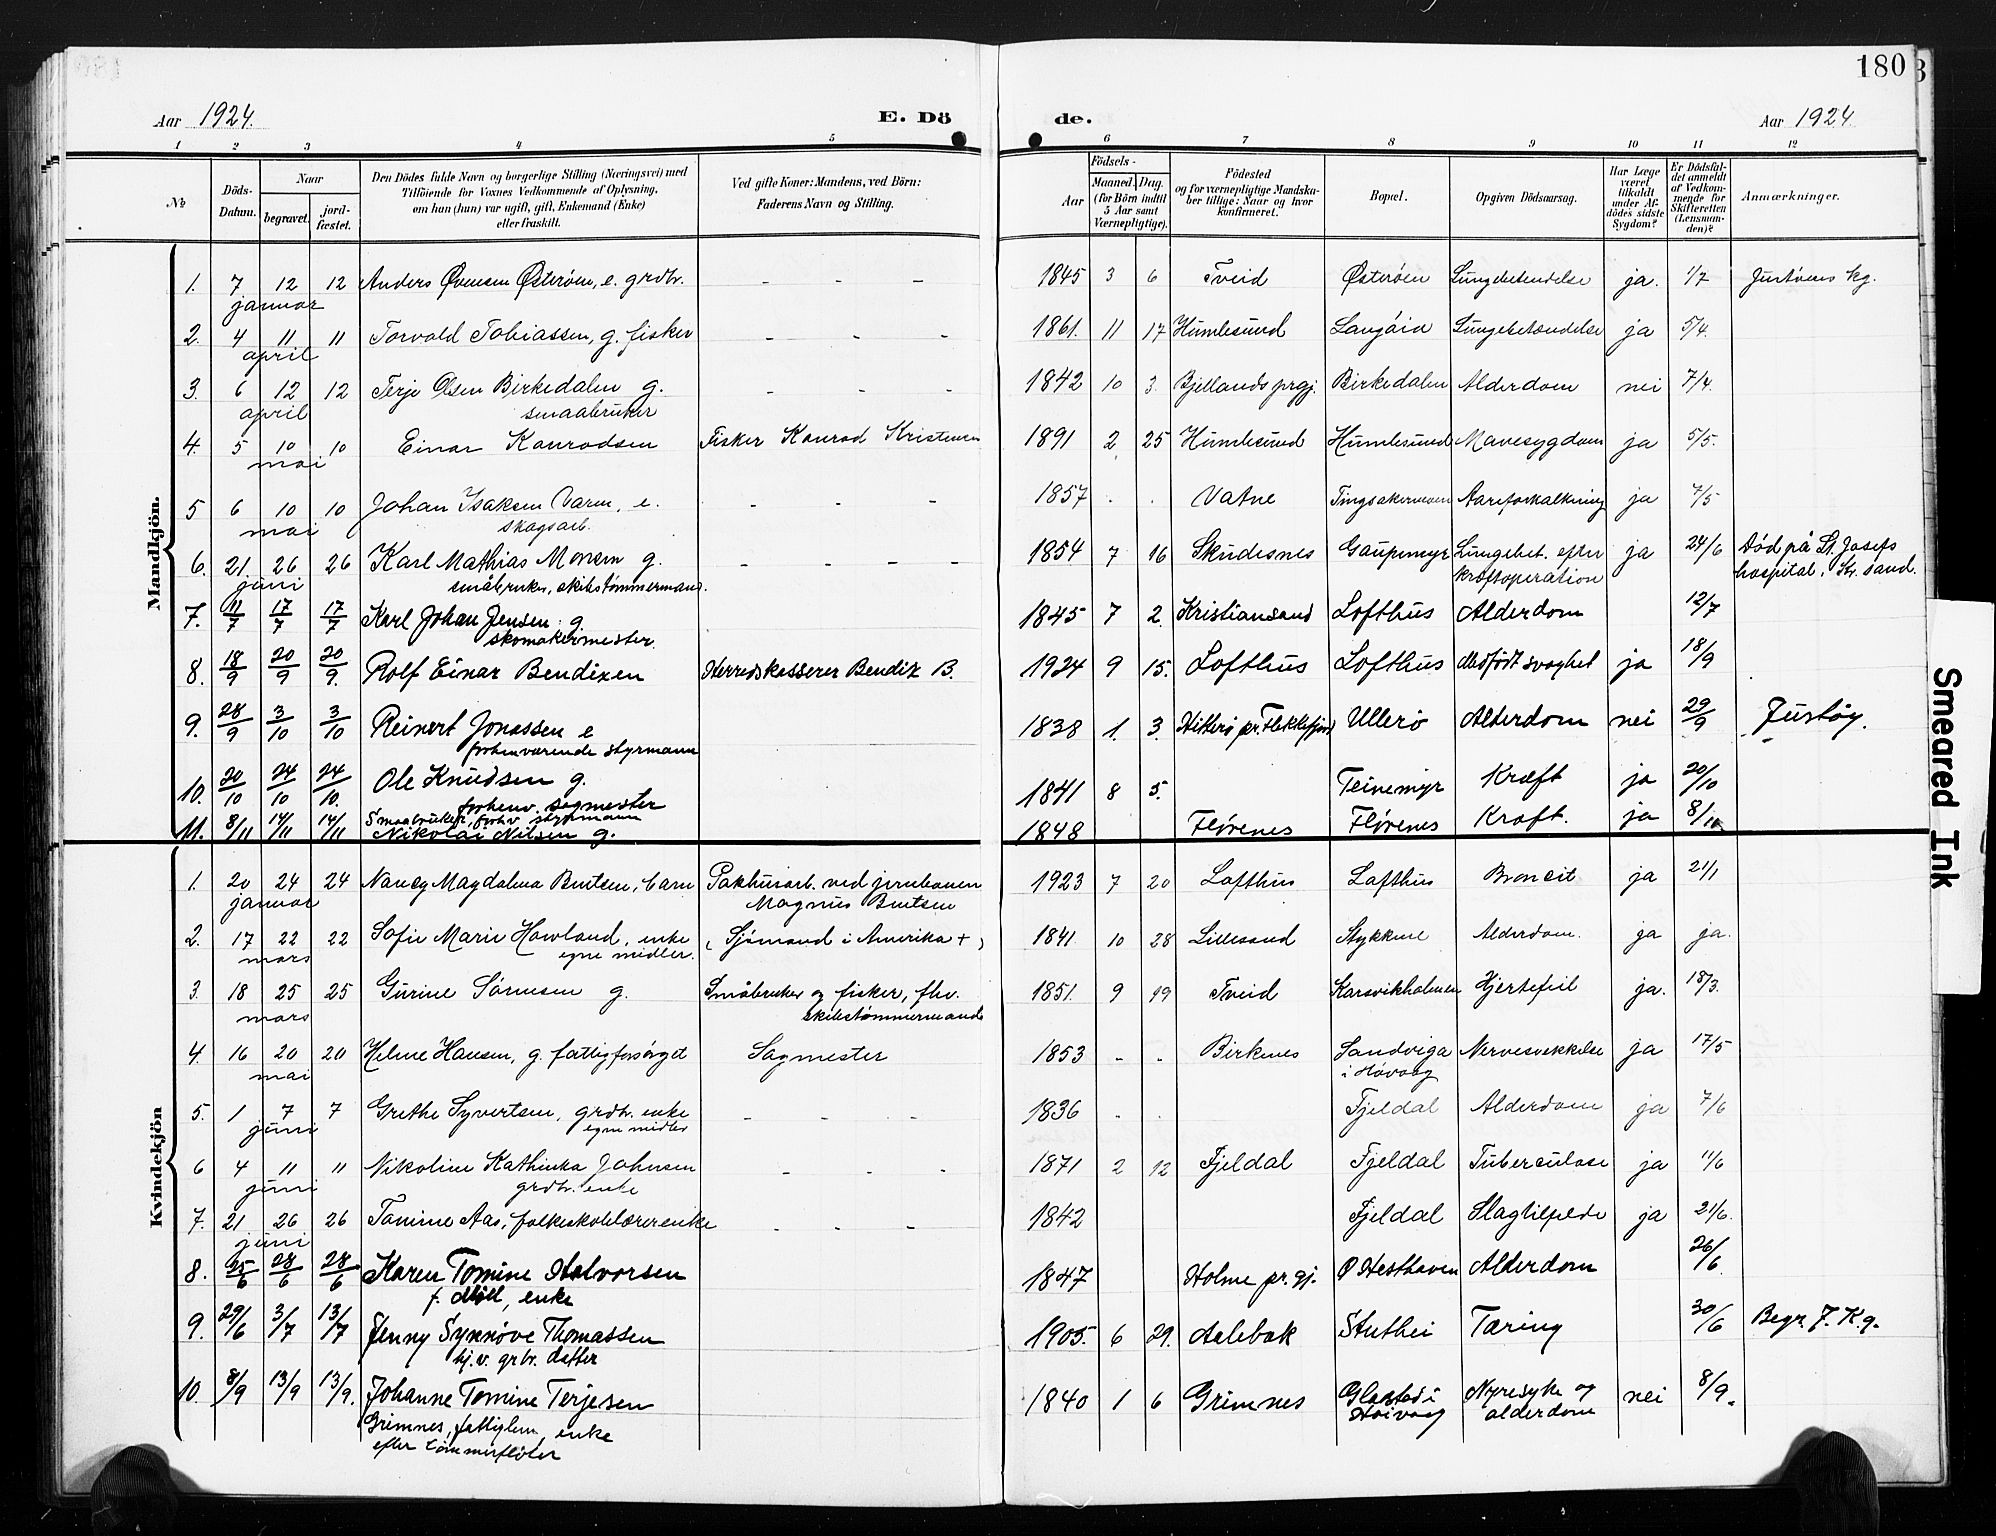 180
Aar 1924.
E. Dö
de.
Aar 1924.
1 2 3 4 5 6 7 8 9 10 11 12
№
Döds-Datum.
Naar
begravet.
jord-fæstet.
Den Dödes fulde Navn og borgerlige Stilling (Næringsvei) med
Tilföiende for Voxnes Vedkommende af Oplysning,
om han (hun) var ugift, gift, Enkemand (Enke)
eller fraskilt.
Ved gifte Koner: Mandens, ved Börn:
Faderens Navn og Stilling.
Aar
Födsels-
Maaned. Dag.
(for Börn indtil
5 Aar samt
Værnepligtige).
Födested
og for værnepligtige Mandska-
ber tillige: Naar og hvor
konfirmeret.
Bopæl.
Opgiven Dödsaarsag.
Har Læge
været
tilkaldt
under Af-
dödes sidste
Sygdom?
Er Dödsfal-
det anmeldt
af Vedkom-
mende for
Skifteretten
(Lensman-
den)?
Anmærkninger.
Mandkjön.
1. 7 januar 12 12 Anders Øvensen Østerøen, e. grdbr. - - - 1845 3 6 Tveid Østerøen Lungebetendelse ja. 1/7 Justøens kg.
2. 4 april 11 11 Torvald Tobiassen, g. fisker - - - 1861. 11 17 Humlesund Langöia Lungebetændelse ja 5/4.
3. 6 april 12 12 Terje Olsen Birkedalen g. smaabruker - - - 1842 10 3. Bjellands prgj. Birkedalen Alderdom nei 7/4.
4. 5 mai 10 10 Einar Konradsen Fisker Konrad Kristensen 1891 2 25 Humlesund Humlesund Mavesygdom ja 5/5.
5 6 mai 10 10 Johan Isaksen Varen, e. skogsarb. - - - 1857 . . Vatne Tingsakermoen Aareforkalkning ja 7/5
6. 21. juni 26 26 Karl Mathias Monsen g. småbruker, skibstømmermand. - - - - 1854 7 16 Skudesnes Gaupemyr Lungebet. efter kræftoperation ja 24/6 Død på St. Josefs hospital, Kr. sand.
7. 11/7 17/7 17/7 Karl Johan Jensen g. skomakermester. 1845 7 2. Kristiansand Lofthus Alderdom 12/7
8. 18/9 20/9 20/9. Rolf Einar Bendixen Herredskasserer Bendix B. 1924 9 15. Lofthus Lofthus Medfødt svaghet ja 18/9
9. 28/9 3/10 3/10 Reinert Jonassen e forhenværende styrmann 1838 1. 3. Hitterø pr. Flekkefjord Ullerø Alderdom nei 29/9 Justøy.
10. 20/10 24/10 24/10. Ole Knudsen g. forhenv. sagmester 1841 8 5. Teinemyr Kræft ja 20/10
11. 8/11 14/11 14/11 Smaabruker, forhv styrmann
Nikolai Nilsen g. 1848 Flørenes Flørenes Kræft. ja 8/11
Kvindekjön
1. 20 januar 24 24 Nancy Magdalena Bentsen, barn Pakhusarb. ved jernbanen Magnus Bentsen 1923 7 20 Lofthus Lofthus Broncit ja 21/1
2. 17 mars 22 22 Sofie Marie Howland, enke egne midler. (Sjømand i Amerika +) 1841 10 28 Lillesand Stykkene Alderdom. ja ja.
3. 18 mars 25 25 Gurine Sørensen g. Småbruker og fisker, fhv. skibstømmermand 1851. 9 19 Tveid Karsvikholmen Hjertefeil ja. 18/3.
4. 16 mai 20 20 Helene Hansen, g. fattigforsørget Sagmester 1853 - - Birkenes Sandviga i Høvaag Nervesvekkelse ja 17/5
5. 1 juni 7 7 Grethe Syvertsen, grdbr. enke egne midler - - - 1836 . . Fjeldal Alderdom ja 7/6
6 4 juni 11 11 Nikoline Kathinka Johnsen grdbr. enke - - - 1871 2 12 Fjeldal Fjeldal Tuberculose ja 11/6
7. 21 juni 26 26 Tomine Aas, folkeskolelærerenke - - 1842 Fjeldal Slagtilfelde ja 21/6.
8. 25/6 28/6 28/6 Karen Tomine Halvorsen f. Møll, enke 1847 Holme pr.gj. Ø Hesthaven Alderdom 26/6.
9. 29/6 3/7 13/7 Jenny Synnøve Thomassen hj.v. grbr. datter 1905. 6 29. Aalebæk Stuthei Tæring 30/6 Begr. J. K.g.
10. 8/9 13/9 13/9. Johanne Tomine Terjesen
Grimnes, fattiglem, enke
efter tømmerfløter 1840 1 6 Grimnes Glastad i Høivaag Nyresyke og alderdom nei 8/9.
Smeared Ink